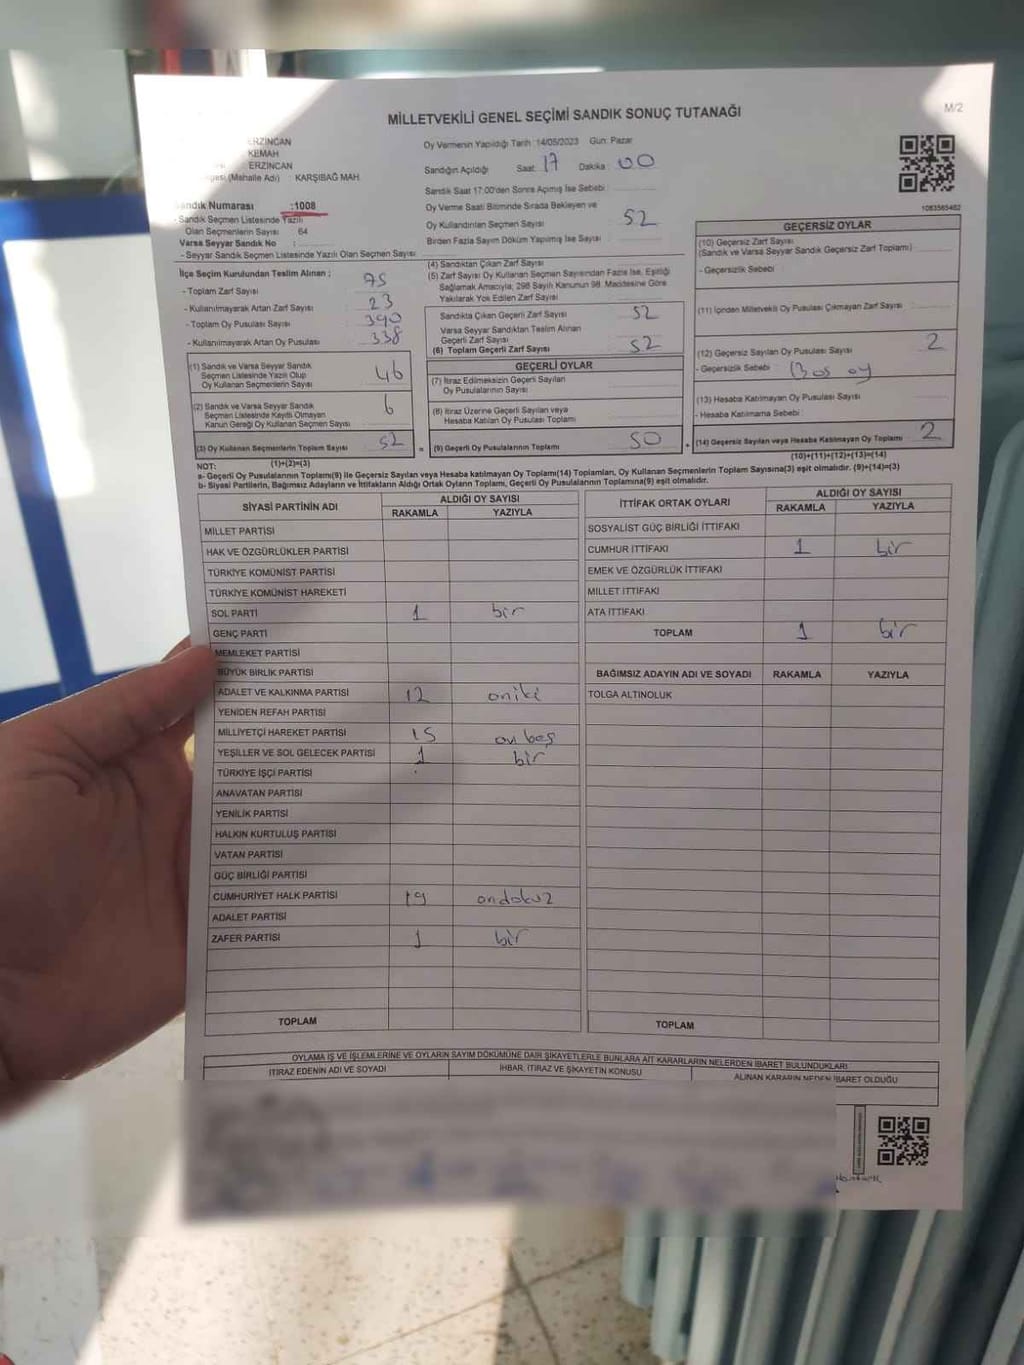 MİLLETVEKİLİ GENEL SEÇİMİ SANDIK SONUÇ TUTANAĞI
M/2
ERZİNCAN
KEMAH
ERZİNCAN
(Mahalle Adı) : KARŞIBAĞ MAH.
Sandık Numarası :1008
- Sandık Seçmen Listesinde Yazılı
Olan Seçmenlerin Sayısı 64
Varsa Seyyar Sandık No :
- Seyyar Sandık Seçmen Listesinde Yazılı Olan Seçmen Sayısı
Oy Vermenin Yapıldığı Tarih : 14/05/2023 Gün: Pazar
Sandığın Açıldığı Saat: 17 Dakika : 00
Sandık Saat 17:00'den Sonra Açılmış İse Sebebi :
Oy Verme Saati Bitiminde Sırada Bekleyen ve
Oy Kullandırılan Seçmen Sayısı 52
Birden Fazla Sayım Döküm Yapılmış İse Sayısı
1083565402
İlçe Seçim Kurulundan Teslim Alınan :
- Toplam Zarf Sayısı 75
- Kullanılmayarak Artan Zarf Sayısı : 23
- Toplam Oy Pusulası Sayısı 390
- Kullanılmayarak Artan Oy Pusulası 338
(1) Sandık ve Varsa Seyyar Sandık
Seçmen Listesinde Yazılı Olup
Oy Kullanan Seçmenlerin Sayısı 46
(2) Sandık ve Varsa Seyyar Sandık
Seçmen Listesinde Kayıtlı Olmayan
Kanun Gereği Oy Kullanan Seçmen Sayısı 6
(3) Oy Kullanan Seçmenlerin Toplam Sayısı 52
(1)+(2)=(3)
(4) Sandıktan Çıkan Zarf Sayısı
(5) Zarf Sayısı Oy Kullanan Seçmen Sayısından Fazla İse, Eşitliği
Sağlamak Amacıyla; 298 Sayılı Kanunun 98. Maddesine Göre
Yakılarak Yok Edilen Zarf Sayısı
Sandıkta Çıkan Geçerli Zarf Sayısı 52
Varsa Seyyar Sandıktan Teslim Alınan
Geçerli Zarf Sayısı
(6) Toplam Geçerli Zarf Sayısı 52
GEÇERLİ OYLAR
(7) İtiraz Edilmeksizin Geçerli Sayılan
Oy Pusulalarının Sayısı
(8) İtiraz Üzerine Geçerli Sayılan veya
Hesaba Katılan Oy Pusulası Toplamı
= (9) Geçerli Oy Pusulalarının Toplamı 50
GEÇERSİZ OYLAR
(10) Geçersiz Zarf Sayısı
(Sandık ve Varsa Seyyar Sandık Geçersiz Zarf Toplamı)
- Geçersizlik Sebebi :
(11) İçinden Milletvekili Oy Pusulası Çıkmayan Zarf Sayısı
(12) Geçersiz Sayılan Oy Pusulası Sayısı 2
- Geçersizlik Sebebi : Boş oy
(13) Hesaba Katılmayan Oy Pusulası Sayısı
- Hesaba Katılmama Sebebi :
+ (14) Geçersiz Sayılan veya Hesaba Katılmayan Oy Toplamı 2
(10)+(11)+(12)+(13)=(14)
NOT:
a- Geçerli Oy Pusulalarının Toplamı(9) ile Geçersiz Sayılan veya Hesaba katılmayan Oy Toplamı(14) Toplamları, Oy Kullanan Seçmenlerin Toplam Sayısına(3) eşit olmalıdır. (9)+(14)=(3)
b- Siyasi Partilerin, Bağımsız Adayların ve İttifakların Aldığı Ortak Oyların Toplamı, Geçerli Oy Pusulalarının Toplamına(9) eşit olmalıdır.
SİYASİ PARTİNİN ADI ALDIĞI OY SAYISI
RAKAMLA YAZIYLA
MİLLET PARTİSİ
HAK VE ÖZGÜRLÜKLER PARTİSİ
TÜRKİYE KOMÜNİST PARTİSİ
TÜRKİYE KOMÜNİST HAREKETİ
SOL PARTİ 1 bir
GENÇ PARTİ
MEMLEKET PARTİSİ
BÜYÜK BİRLİK PARTİSİ
ADALET VE KALKINMA PARTİSİ 12 oniki
YENİDEN REFAH PARTİSİ
MİLLİYETÇİ HAREKET PARTİSİ 15 on beş
YEŞİLLER VE SOL GELECEK PARTİSİ 1 bir
TÜRKİYE İŞÇİ PARTİSİ
ANAVATAN PARTİSİ
YENİLİK PARTİSİ
HALKIN KURTULUŞ PARTİSİ
VATAN PARTİSİ
GÜÇ BİRLİĞİ PARTİSİ
CUMHURİYET HALK PARTİSİ 19 ondokuz
ADALET PARTİSİ
ZAFER PARTİSİ 1 bir
TOPLAM
İTTİFAK ORTAK OYLARI ALDIĞI OY SAYISI
RAKAMLA YAZIYLA
SOSYALİST GÜÇ BİRLİĞİ İTTİFAKI
CUMHUR İTTİFAKI 1 bir
EMEK VE ÖZGÜRLÜK İTTİFAKI
MİLLET İTTİFAKI
ATA İTTİFAKI
TOPLAM 1 bir
BAĞIMSIZ ADAYIN ADI VE SOYADI RAKAMLA YAZIYLA
TOLGA ALTINOLUK
TOPLAM
OYLAMA İŞ VE İŞLEMLERİNE VE OYLARIN SAYIM DÖKÜMÜNE DAİR ŞİKAYETLERLE BUNLARA AİT KARARLARIN NELERDEN İBARET BULUNDUKLARI
İTİRAZ EDENİN ADI VE SOYADI İHBAR, İTİRAZ VE ŞİKAYETİN KONUSU ALINAN KARARIN NEDEN İBARET OLDUĞU